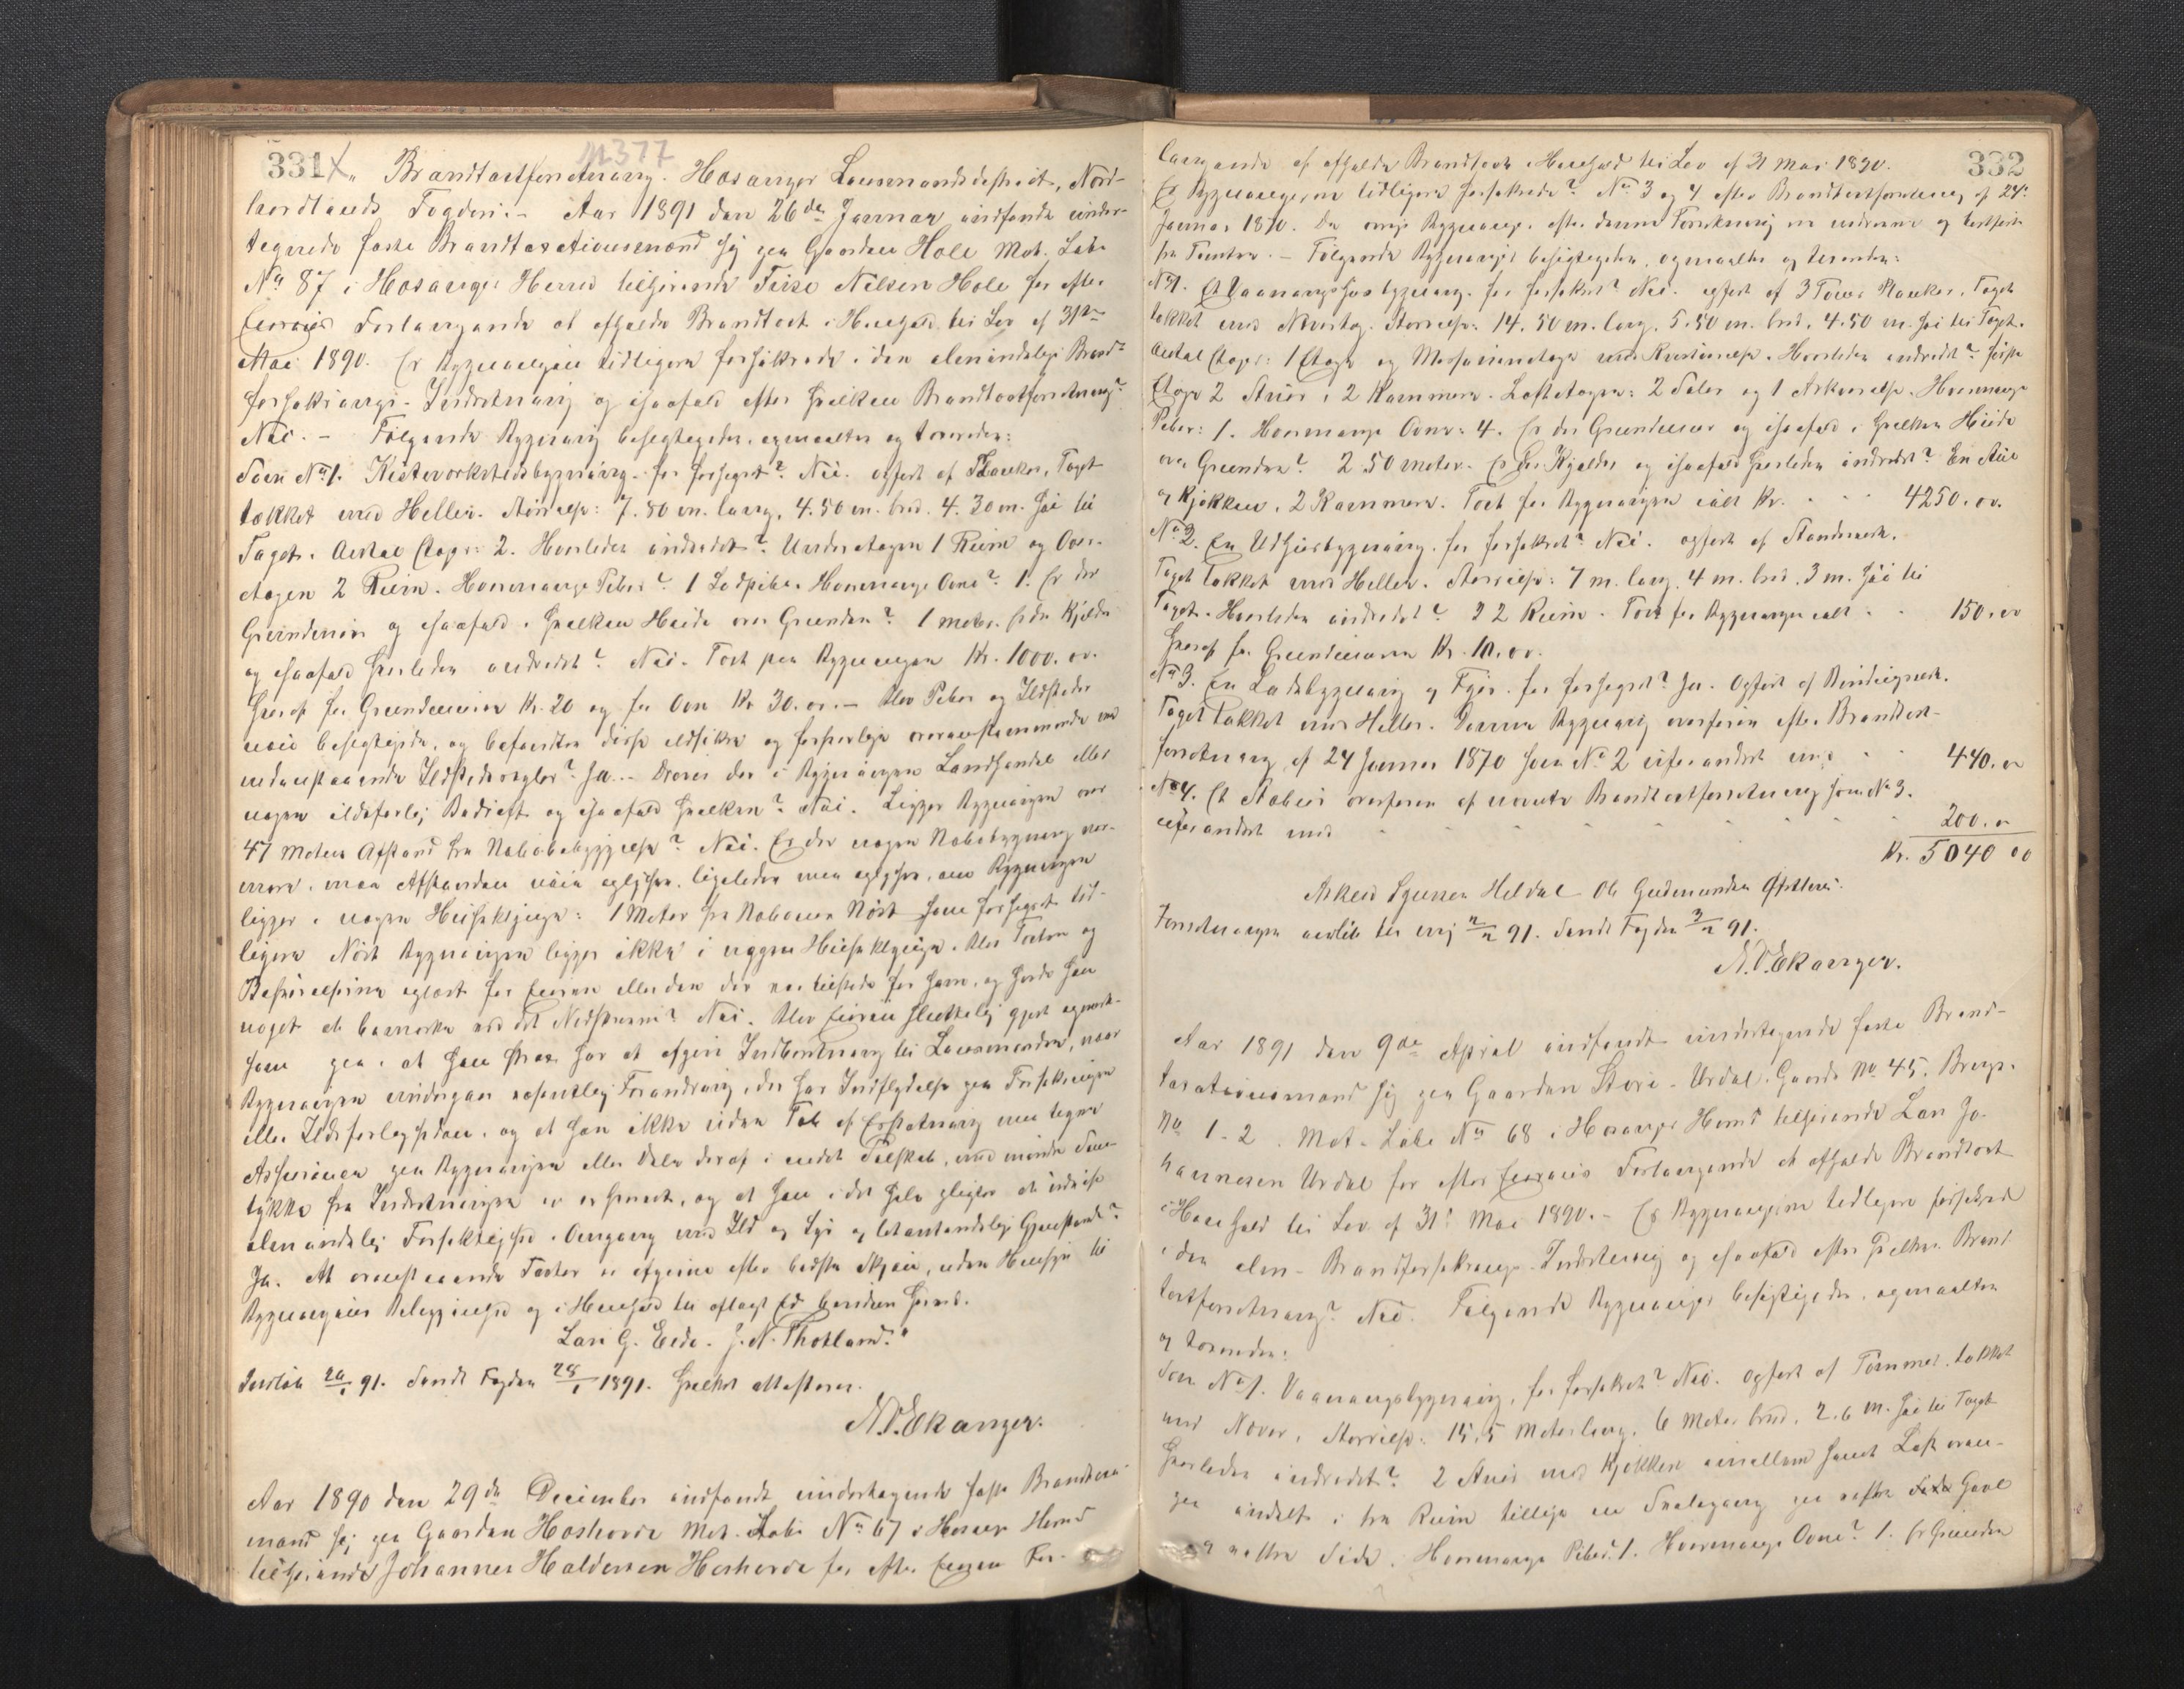 331 X
" Brandtaxtforretning. Hosanger Lensmandsdistrict, Nord-
hordlands Fogderi. - Aar 1891 den 26de Januar indfandt under-
tegnede faste Brandtaxationsmænd sig paa Gaarden Hole Mat. Løbe
No 87 i Hosanger Herred tilhørende Nilsen Hole for efter
Eierens Forlangende at afholde Brandtaxt i Henhold til Lov af 31te
Mai 1890. Er Bygningen tidligere forsikrede i den almindelige Brand-
forsikrings-Indretning og isaafald efter hvilken Brandtaxtforretning?
Nei. - Følgende Bygning besigtigedes, opmaaltes og taxeredes:
Som No 1. Kisteverkstedsbygning. før forsikret? Nei. opført af Planker, Taget
tækket med Heller. Størrelse: 7.80 m. lang, 4.50 m. bred. 4.30 m. høi til
Taget. Antal Etager: 2. Hvorledes indredet? Underetagen 1 Rum og Over-
etagen 2 Rum. Hvormange Piber? 1 Hvormange Ovne? 1. Er der
Grundmur og isaafald i hvilken Høide over Grunden? 1 meter. Er der Kjelder
og isaafald hvorledes indredet? Nei. Taxt paa Bygningen Kr. 1000.00.
Heraf for Grundmuren Kr. 20 og for Ovn Kr 30.00. - Blev Piber og Ildsteder
nøie besigtigede, og befandtes disse ildsikre og forsvarlige overensstemmende med
nedenstaaende Ildstedsregler? Ja. - Drives der i Bygningen Landhandel eller
nogen ildsfarlig Bedrift og isaafald hvilken? Nei. Ligger Bygningen over
47 Meters Afstand fra Nabobebyggelse? Nei. Er der nogen Nabobygning nær-
mere, maa Afstanden nøie oplyses, ligeledes maa oplyses, om Bygningen
ligger i nogen Husklynge: 1 Meter fra Naboens Nøst som forhen tid-
ligere Nøst Bygningen ligger ikke i nogen Husklynge. Blev Taxten og
Beskrivelserne oplæst for Eieren eller den der var tilstede for ham, og havde han
noget at bemærke ved det Nedskrevne? Nei. Blev Eieren sluttelig gjort opmærk-
som paa, at han strax har at afgive Indberetning til Lensmanden, naar
Bygningen undergaar væsentlig Forandring, der har Indflydelse paa Forsikringen
eller Ildsfarligheden, og at han ikke uden Tab af Erstatning maa tegne
Assurance paa Bygningen eller Dele deraf i andet Selskab, med mindre Sam-
tykke fra Indretningen er erhvervet, og at han i det hele pligter at udvise
almindelig Forsigtighed i Omgang med Ild og Lys og letantændelige Gjenstande?
Ja. At ovenstaaende Taxter er afgivne efter bedste Skjøn, uden Hensyn til
Bygningens Beliggenhed og i Henhold til aflagt Ed bevidnes herved.
Lars G. Eide. J. N. Thotland. "
Indløb 91. Sendt Fogden 28/1 1891. hvilket attesteres.
N. O. Ekanger.
Aar 1890 den 29de December indfandt undertegnede faste Brandtaxa-
mænd sig paa Gaarden Hoshovde Mat. Løbe No 67 i Hosanger Herred
tilhørende Johannes Haldorsen Hoshovde for efter Eierens For-
332
langende at afholde Brandtaxt i Henhold til Lov af 31 Mai 1890.
Er Bygningerne tidligere forsikrede? No 3 og 4 efter Brandtaxtforretning af 24:
Januar 1870. De øvrige Bygninger efter denne Forretning er nedrevne og bortført
fra Tomten. - Følgende Bygninger besigtigedes, opmaaltes og taxeredes:
No 1. Et Vaaningshusbygning. før forsikret? Nei. opført af 3 Tom. Planker. Taget
tækket med Størrelse: 14.50 m. lang, 5.50 m. bred, 4.50 m. høi til Taget.
Antal Etager: 1 Etage og Hvorledes indredet? første
Etage 2 Stuer, 2 Kammere. Loftetagen: 2 Saler og 1 Hvormange
Piber: 1. Hvormange Ovne: 4. Er der Grundmur og isaafald i hvilken Høide
over Grunden? 2.50 meter. Er der Kjelder og isaafald hvorledes indredet? En Stue
og Kjøkken, 2 Kammere. Taxt for Bygningen ialt Kr. - - - 4250.00.
No 2. En Udhusbygning. før forsikret? Nei. opført af Standverk.
Taget tækket med Heller. Størrelse: 7 m. lang, 4 m. bred, 3 m. høi til
Taget. Hvorledes indredet? 2 Rum. Taxt for Bygningen ialt - - 150.00
Heraf for Grundmuren Kr. 10.00.
No 3. En Ladebygning og Fjøs. før forsikret? Ja. Opført af Bindingsverk.
Taget tækket med Heller. Denne Bygning overføres efter Brandtaxt-
forretning af 24 Januar 1870 som No 2 uforandret med - - 440.00
No 4. Et Stabur overføres af nævnte Brandtaxtforretning som No 3.
uforandret med - - - - - - - 200.00
Kr. 5040 00
Askild Heldal Ole Gudmundsen
Forretningen indløb til mig 91. Sendt Fogden 91.
N. O. Ekanger.
Aar 1891 den 9de April indfandt undertegnede faste Brand-
taxationsmænd sig paa Gaarden Store-Urdal. Gaards No 45. Brugs-
No 1-2. Mat. Løbe No 68 i Hosanger Herred tilhørende Lars Jo-
hannesen Urdal for efter Eierens Forlangende at afholde Brandtaxt
i Henhold til Lov af 31: Mai 1890. - Er Bygningerne tidligere forsikrede
i den alm. Brandforsikrings-Indretning og isaafald efter hvilken Brand-
taxtforretning? Nei. Følgende Bygninger besigtigedes, opmaaltes
og taxeredes:
Som No 1. Vaaningsbygning, før forsikret? Nei. opført af Tømmer, tækket
med Never, Størrelse: 15,5 Meter lang, 6 Meter bred, 2.6 m. høi til Taget
hvorledes indredet? 2 Stuer med Kjøkken imellem samt Loft oven-
paa inddelt i tre Rum tillige en Svalegang paa østre Side Gavl
og vestre Side. Hvormange Piber? 1. Hvormange Ovne? 1. Er Grunden